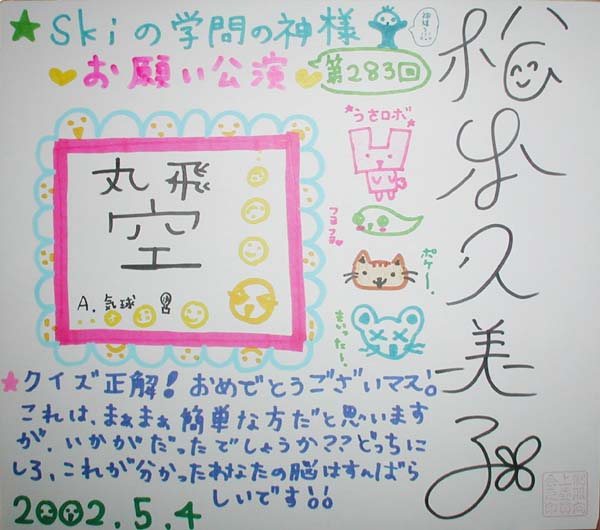 ★Skiの学問の神様
お願い公演
第283回
松本久美子
うさロボ
フルフル
ポケ〜。
まいった〜。
丸飛
空
A.気球
★クイズ正解!おめでとうございマス。
これは、まぁまぁ簡単な方だと思います
が、いかがだったでしょうかココどっちに
しろ、これが分かったあなたの脳はすんばら
しいです!!
2002.5.4